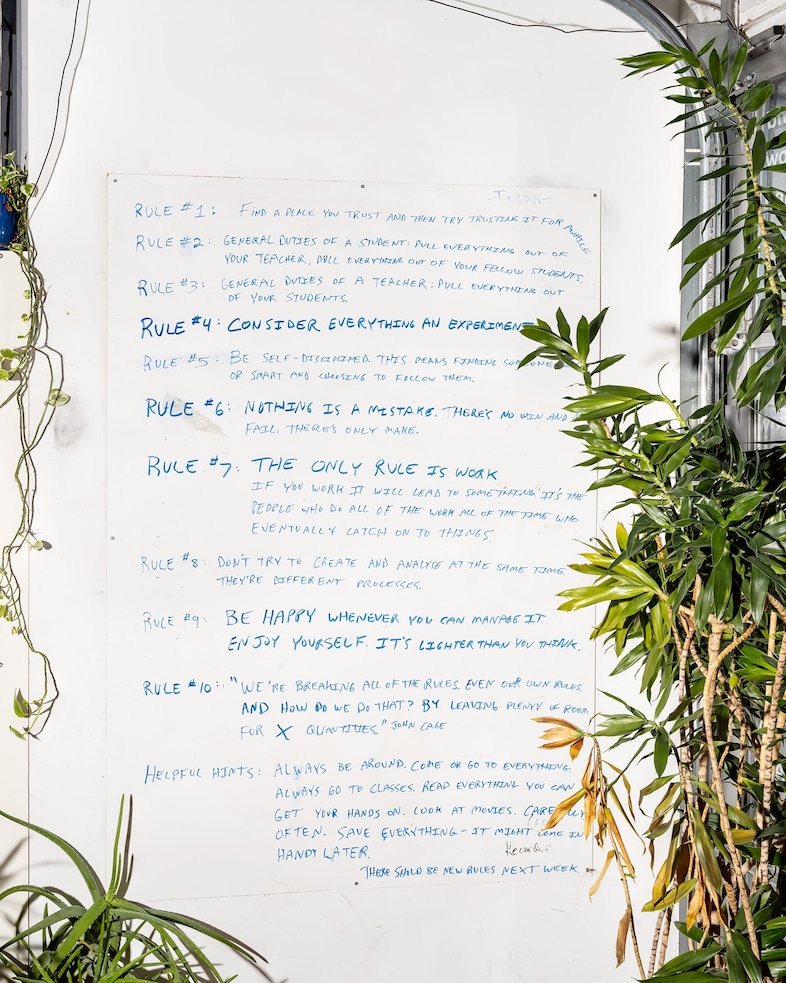 -INTERN-
RULE #1: FIND A PLACE YOU TRUST AND THEN TRY TRUSTING IT FOR AWHILE
RULE #2: GENERAL DUTIES OF A STUDENT: PULL EVERYTHING OUT OF
YOUR TEACHER. PULL EVERYTHING OUT OF YOUR FELLOW STUDENTS.
RULE #3: GENERAL DUTIES OF A TEACHER: PULL EVERYTHING OUT
OF YOUR STUDENTS.
RULE #4: CONSIDER EVERYTHING AN EXPERIMENT
RULE #5: BE SELF-DISCIPLINED. THIS MEANS FINDING SOMEONE
OR SMART AND CHOOSING TO FOLLOW THEM.
RULE #6: NOTHING IS A MISTAKE. THERE'S NO WIN AND
FAIL. THERE'S ONLY MAKE.
RULE #7: THE ONLY RULE IS WORK
IF YOU WORK IT WILL LEAD TO SOMETHING. IT'S THE
PEOPLE WHO DO ALL OF THE WORK ALL OF THE TIME WHO
EVENTUALLY LATCH ON TO THINGS.
RULE #8: DON'T TRY TO CREATE AND ANALYSE AT THE SAME TIME.
THEY'RE DIFFERENT PROCESSES.
RULE #9: BE HAPPY WHENEVER YOU CAN MANAGE IT.
ENJOY YOURSELF. IT'S LIGHTER THAN YOU THINK.
RULE #10: "WE'RE BREAKING ALL OF THE RULES. EVEN OUR OWN RULES.
AND HOW DO WE DO THAT? BY LEAVING PLENTY OF ROOM
FOR X QUANTITIES." JOHN CAGE
HELPFUL HINTS: ALWAYS BE AROUND. COME OR GO TO EVERYTHING.
ALWAYS GO TO CLASSES. READ EVERYTHING YOU CAN
GET YOUR HANDS ON. LOOK AT MOVIES. CAREFULLY
OFTEN. SAVE EVERYTHING - IT MIGHT COME IN
HANDY LATER.
THERE SHOLD BE NEW RULES NEXT WEEK.